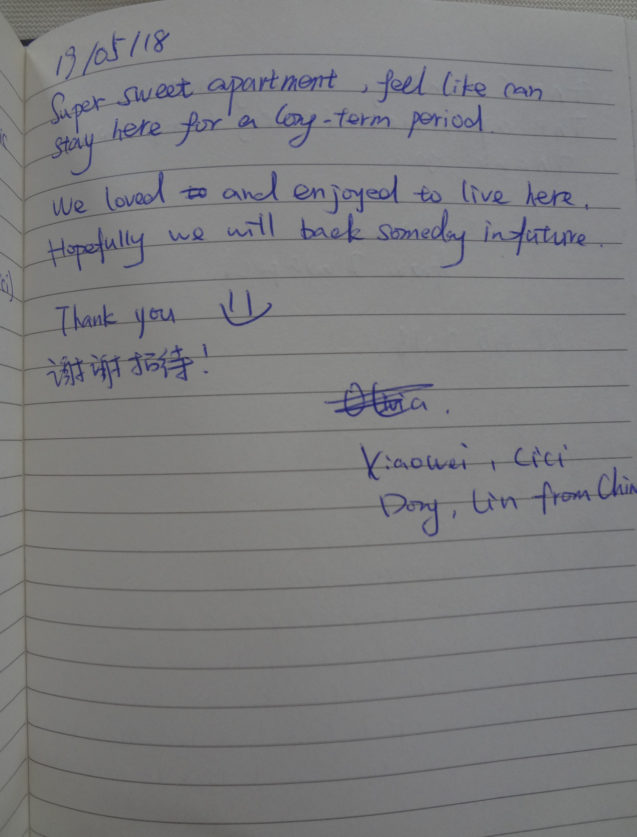 19/05/18
Super sweet apartment, feel like can
stay here for a long-term period.
We loved to and enjoyed to live here.
Hopefully we will back someday in future.
Thank you
谢谢招待!
Olivia.
Xiaowei, Cici
Dong, Lin from Chin